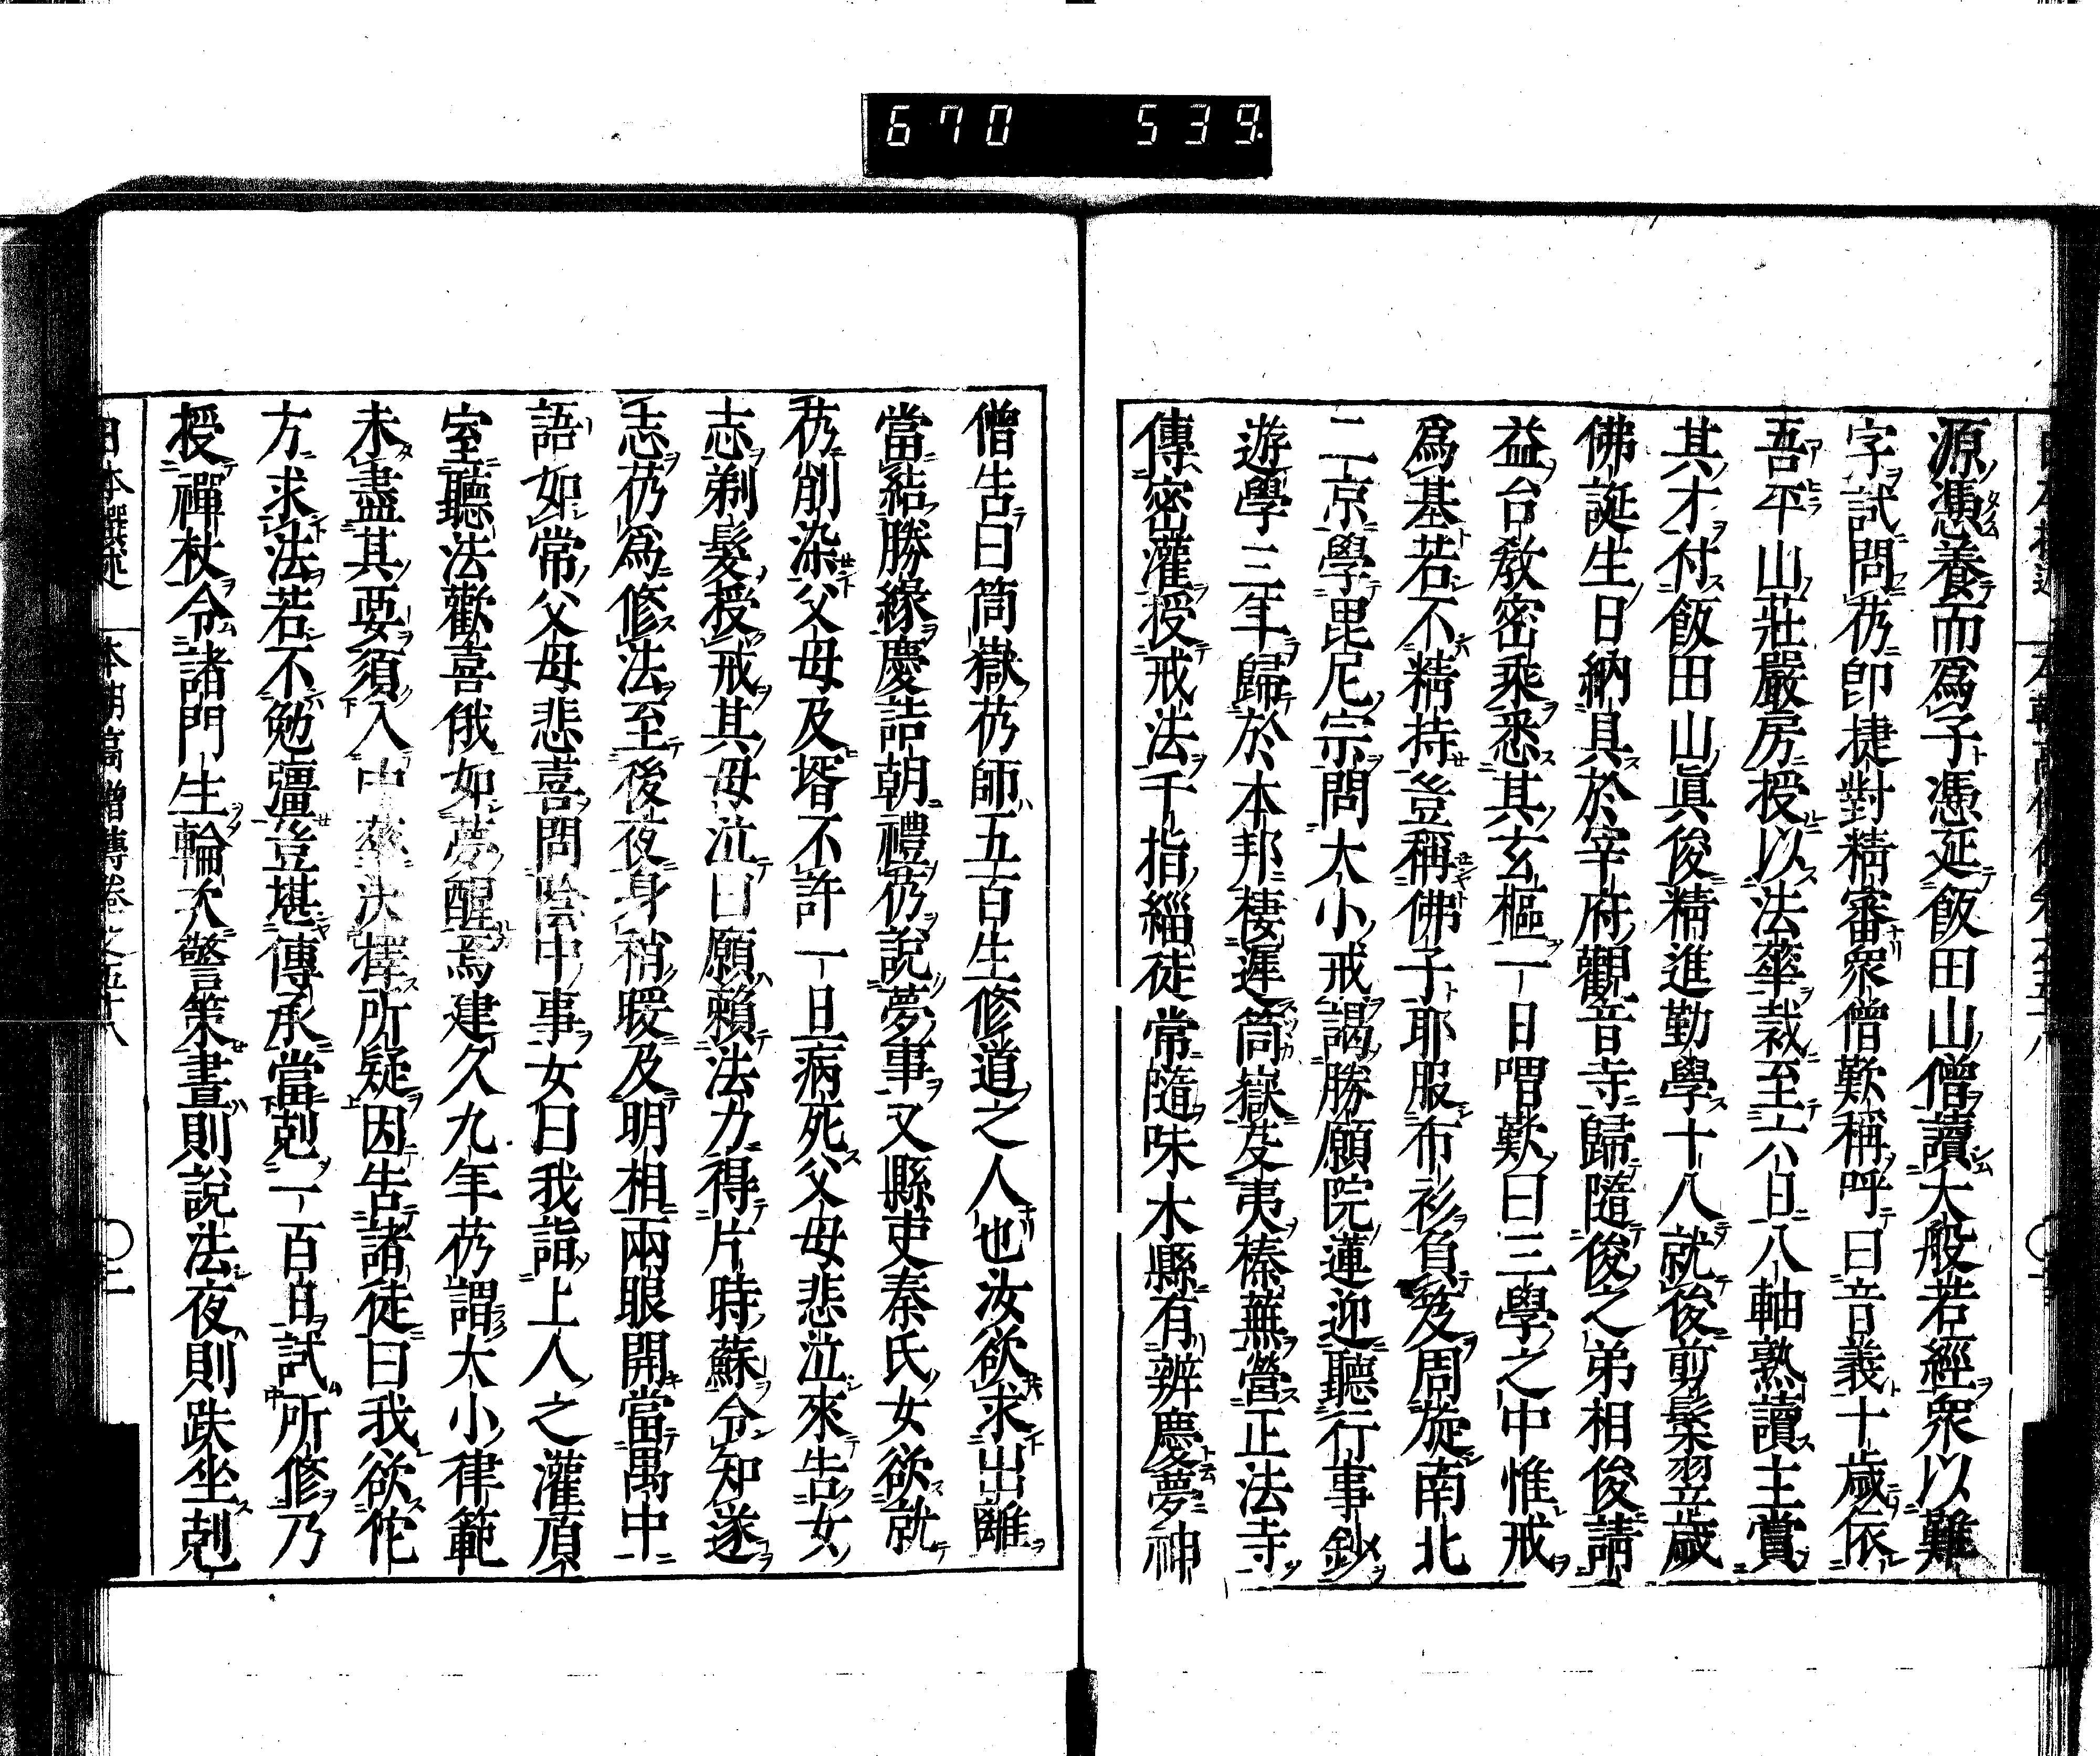 670 539
源憑養而爲子憑延飯田山僧讀大般若經衆以難
字試問芿卽捷對精審衆僧歎稱呼曰音義十歲依
吾平山莊嚴房授以法華裁至六日八軸熟讀主賞
其才付飯田山眞俊精進勤學十八就俊剪髮翌歲
佛誕生日納具於宰府觀音寺歸隨俊之弟相俊請
益台敎密乘悉其玄樞一日喟歎曰三學之中惟戒
爲基若不精持豈稱佛子耶服布衫負笈周旋南北
二京學毘尼宗問大小戒謁勝願院蓮迎聽行事鈔
遊學三年歸於本邦棲遲筒嶽芟夷榛蕪營正法寺
傳密灌授戒法千指緇徒常隨味木縣有辨慶夢神
僧告曰筒嶽芿師五百生修道之人也汝欲求出離
當結勝緣慶詰朝禮芿說夢事又縣吏秦氏女欲就
芿削染父母及壻不許一旦病死父母悲泣來告女
志剃髮授戒其母泣曰願賴法力得片時蘇令知遂
志芿爲修法至後夜身稍暖及明相兩眼開當禺中
語如常父母悲喜問陰中事女曰我詣上人之灌頂
室聽法歡喜俄如夢醒焉建久九年芿謂大小律範
未盡其要須入中華決擇所疑因告諸徒曰我欲佗
方求法若不勉彊豈堪傳承當剋一百日試所修乃
授禪杖令諸門生輪次警策晝則說法夜則趺坐剋
日本撰述 本朝高僧傳卷之五十八 〇二